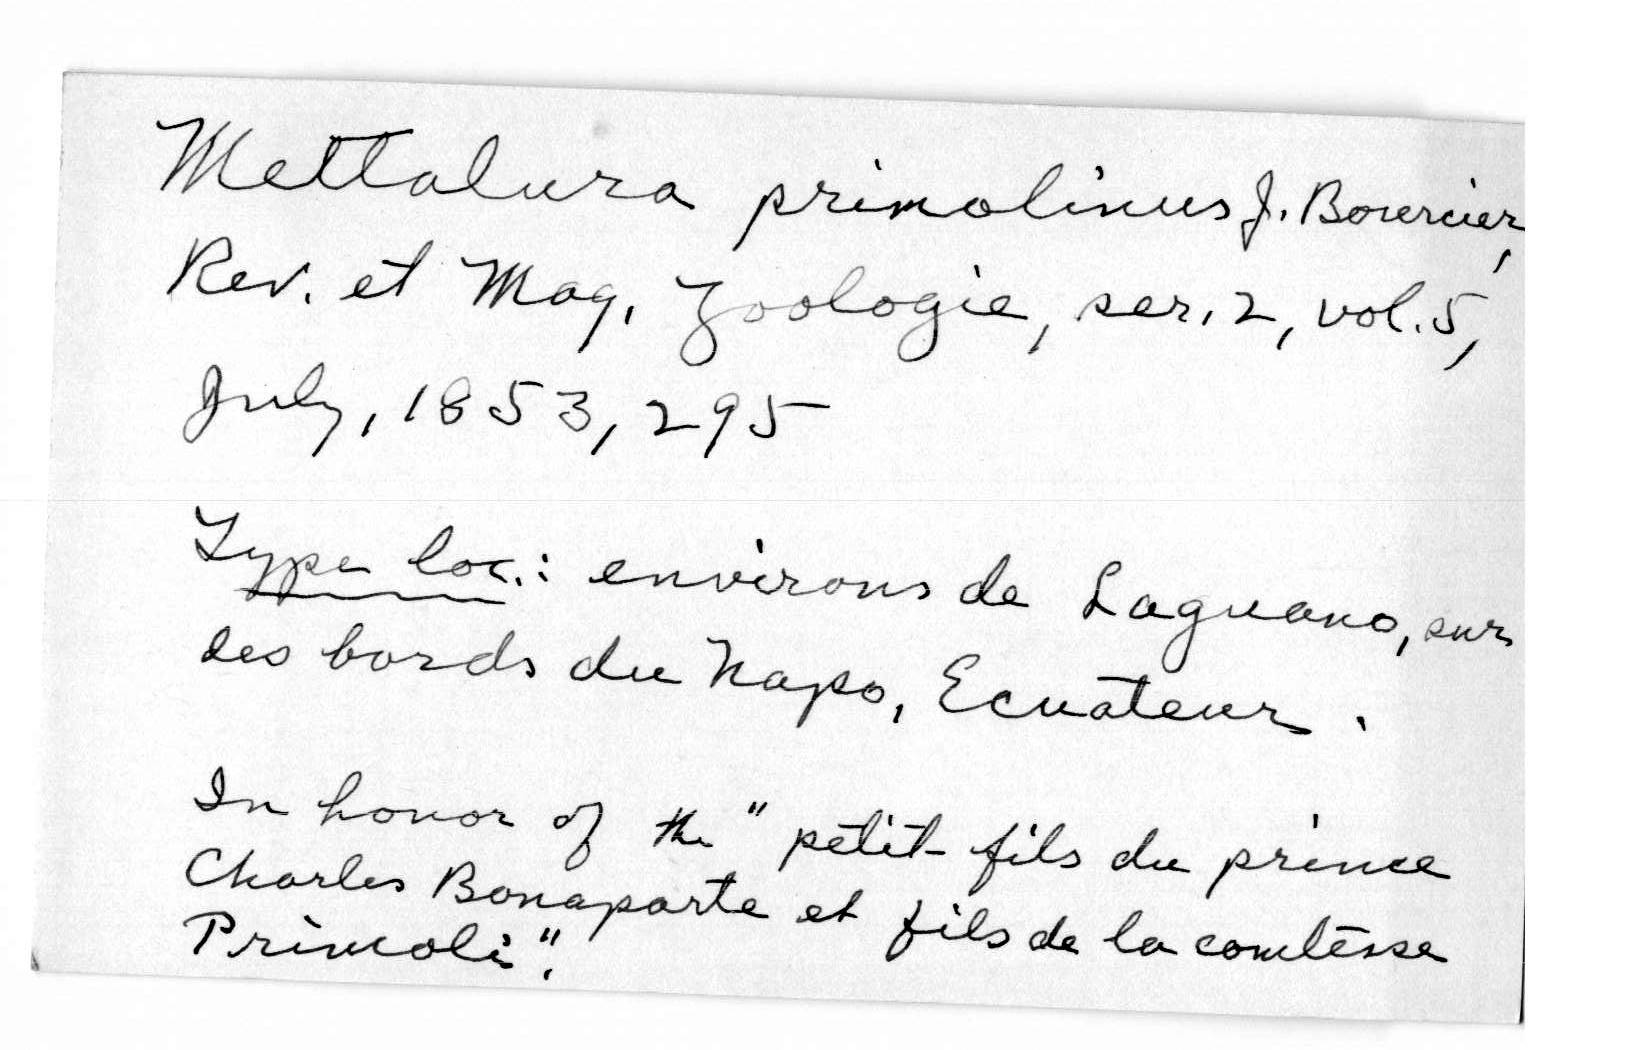 Mettalura primolinus J. Bourcier,
Rev. et Mag. Zoologie, ser. 2, vol. 5,
July, 1853, 295
Type loc.: environs de Laguano, sur
les bords du Napo, Ecuateur.
In honor of the "petit-fils du prince
Charles Bonaparte et fils de la comtesse
Primoli".